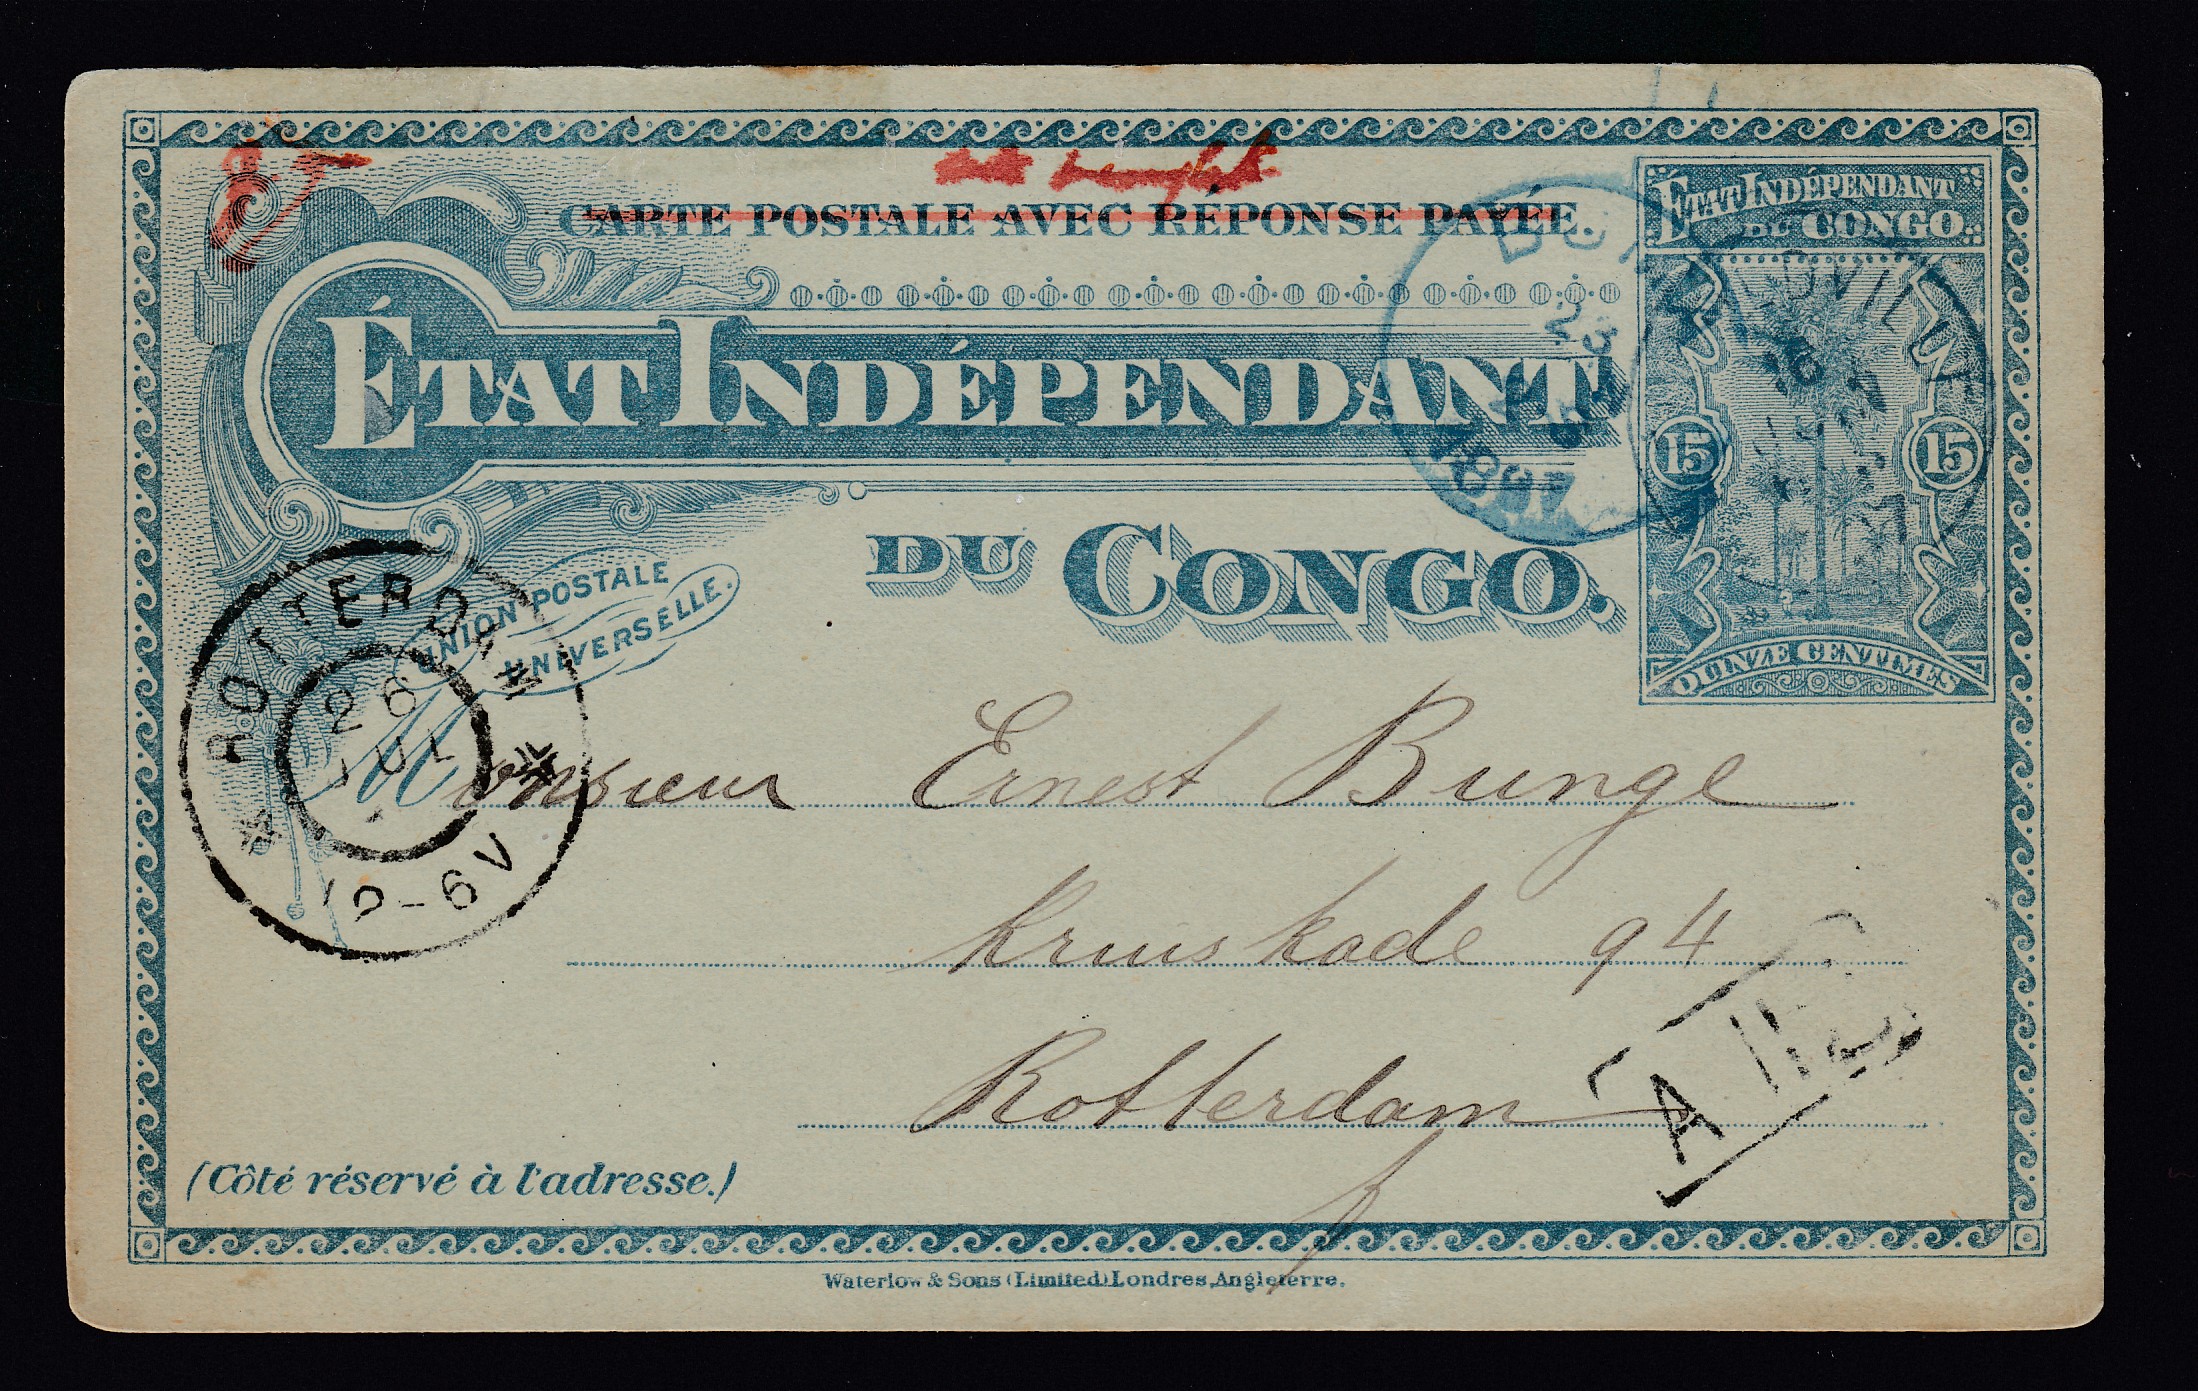 CARTE POSTALE AVEC RÉPONSE PAYÉE.
ÉTAT INDÉPENDANT
DU CONGO.
UNION POSTALE
UNIVERSELLE.
ÉTAT INDÉPENDANT
DU CONGO
15 15
QUINZE CENTIMES
23
1897
ROTTERDAM
26
JUL
12-6V
Monsieur Ernest Bunge
Kruiskade 94
Rotterdam
A
(Côté réservé à l'adresse.)
Waterlow & Sons (Limited) Londres, Angleterre.